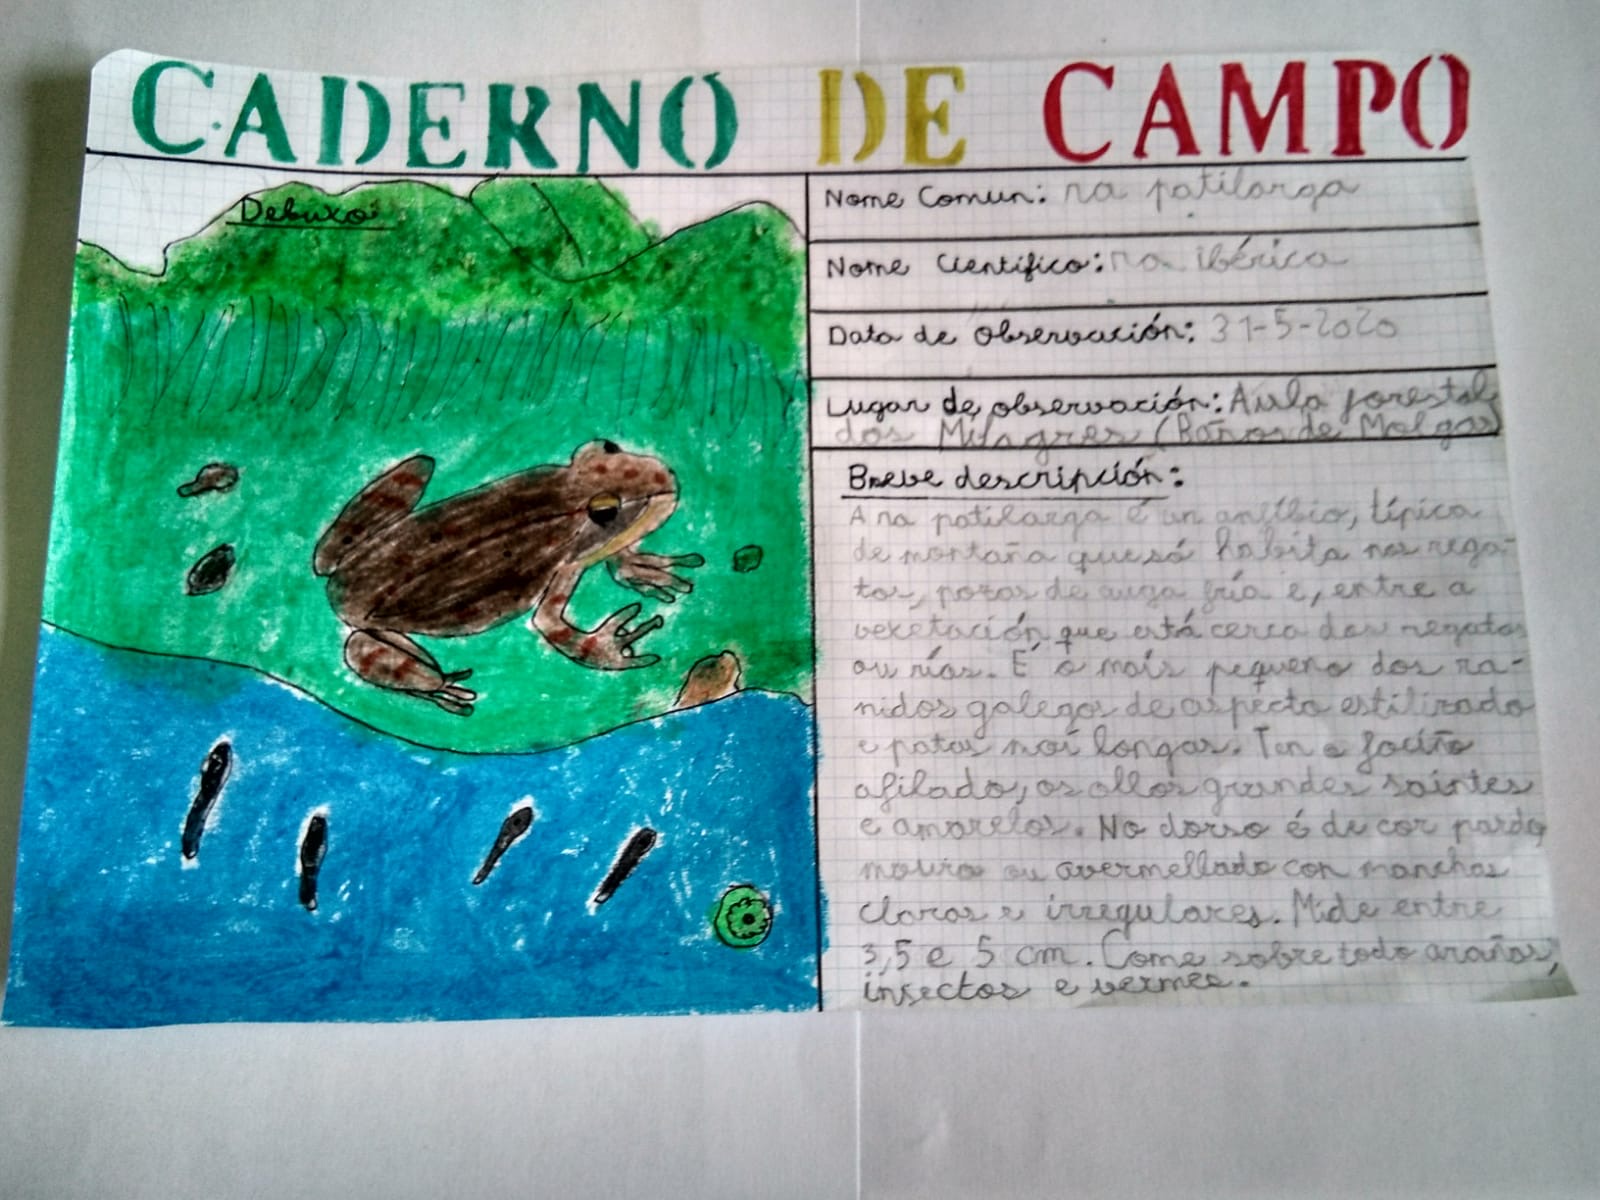 CADERNO DE CAMPO
Debuxo:
Nome Comun: ra patilarga
Nome Científico: ra ibérica
Data de observación: 31-5-2020
Lugar de observación: Aula forestal
dos Milagres (Baños de Molgas)
Breve descripción:
A ra patilarga é un anfíbio, típica
de montaña que só habita nos rega-
tos, pozas de auga fría e, entre a
vexetación que está cerca dos regatos
ou ríos. É o mais pequeno dos ra-
nidos galegos de aspecto estilizado
e patas moi longas. Ten o fociño
afilado, os ollos grandes saintes
e amarelos. No dorso é de cor pardo,
mouro ou avermellado con manchas
claras e irregulares. Mide entre
3,5 e 5 cm. Come sobre todo arañas,
insectos e vermes.